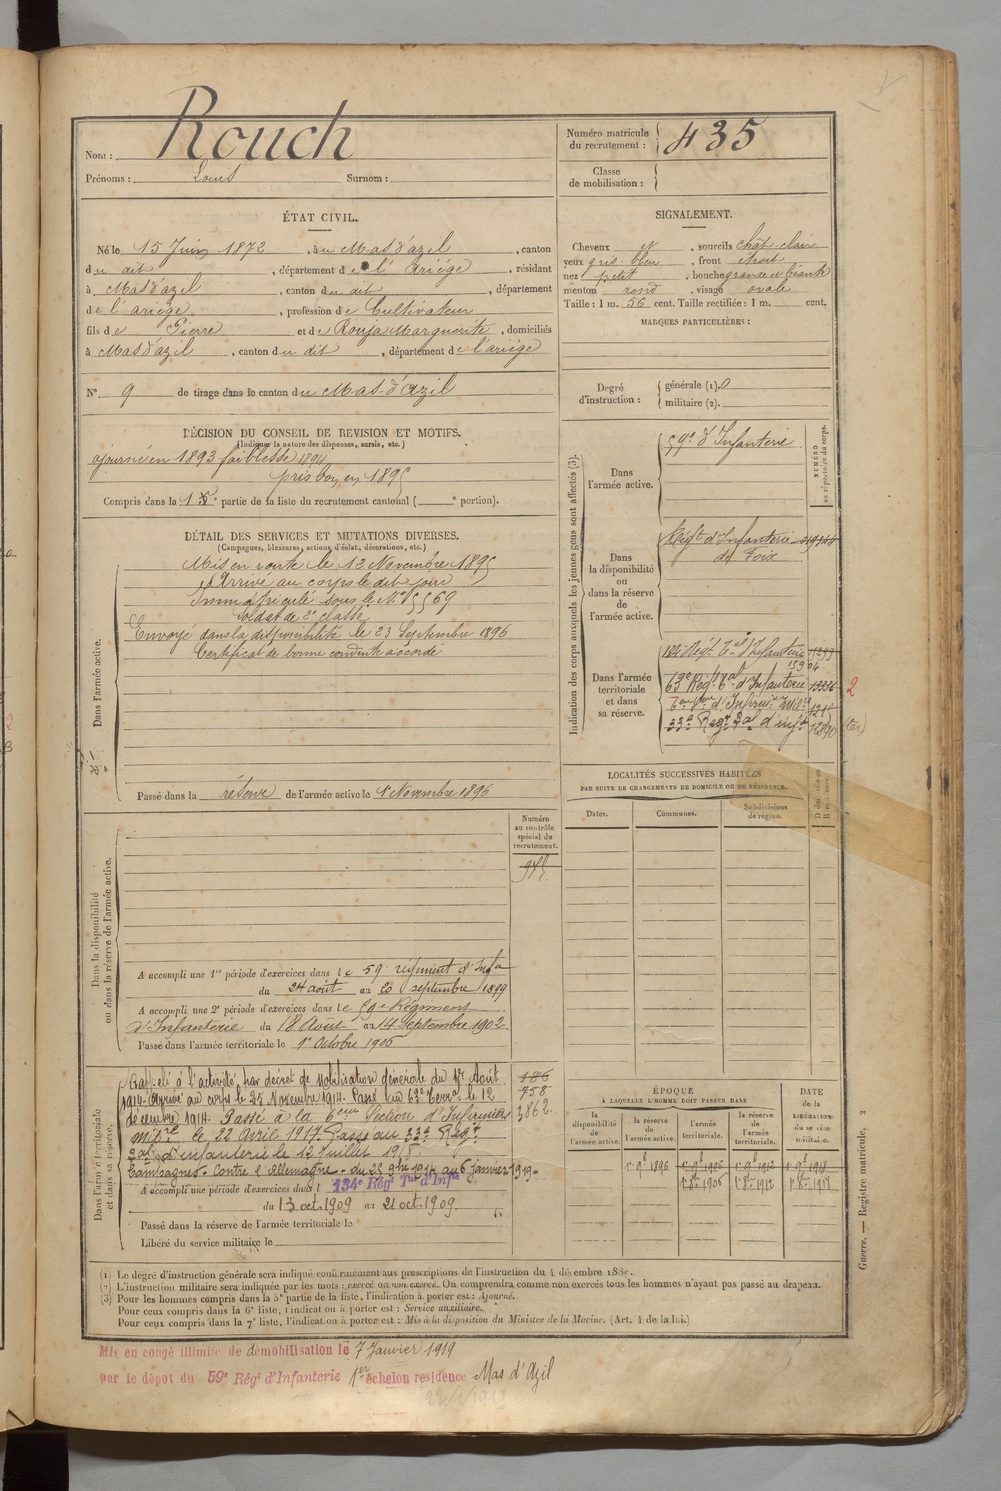 Nom : Rouch
Prénoms : Louis Surnom :
Numéro matricule du recrutement : 435
Classe de mobilisation :
ÉTAT CIVIL.
Né le 15 Juin 1872, à u Mas d'azil, canton
du dit, département de l'Ariège, résidant
à Mas d'azil, canton du dit, département
de l'ariège, profession de Cultivateur
fils de Pierre et de Rouja Marguerite, domiciliés
à Mas d'azil, canton du dit, département de l'ariège
N° 9 de tirage dans le canton du Mas-d'Azil
SIGNALEMENT.
Cheveux et, sourcils chât-clair
yeux gris-bleu, front étroit
nez petit, bouche grande et béante
menton rond, visage ovale
Taille : 1 m. 56 cent. Taille rectifiée : 1 m. cent.
MARQUES PARTICULIÈRES :
Degré d'instruction : générale (1). 0
militaire (2).
DÉCISION DU CONSEIL DE REVISION ET MOTIFS.
(Indiquer la nature des dispenses, sursis, etc.)
ajourné en 1893 faiblesse 1894
pris bon en 1895
Compris dans la 1e partie de la liste du recrutement cantonal ( e portion).
DÉTAIL DES SERVICES ET MUTATIONS DIVERSES.
(Campagnes, blessures, actions d'éclat, décorations, etc.)
Dans l'armée active.
Mis en route le 13 Novembre 1895
Arrivé au corps le dit jour
Immatriculé sous le N° 5569
Soldat de 2e classe
Envoyé dans la disponibilité le 23 Septembre 1896
Certificat de bonne conduite accordé
Passé dans la réserve de l'armée active le 1er Novembre 1896
Indication des corps auxquels les jeunes gens sont affectés (3).
NUMÉRO au répertoire du corps.
Dans l'armée active.
59e d'Infanterie
Dans la disponibilité ou dans la réserve de l'armée active.
Régt d'Infanterie
de Foix
Dans l'armée territoriale et dans sa réserve.
134e Régt Tal d'Infanterie
15904
63e Régt Tal d'Infanterie 13336 2
33e Régt Tal d'infie 12890 (ter)
LOCALITÉS SUCCESSIVES HABITÉES
PAR SUITE DE CHANGEMENTS DE DOMICILE OU DE RÉSIDENCE.
Dates. Communes. Subdivisions de région.
Dans la disponibilité ou dans la réserve de l'armée active.
Numéro au contrôle spécial du recrutement.
A accompli une 1re période d'exercices dans le 59 régiment d'Infie
du 24 août au 20 septembre 1899
A accompli une 2e période d'exercices dans le 59e Régiment
d'Infanterie du 18 Août au 14 Septembre 1902.
Passé dans l'armée territoriale le 1er Octobre 1906
Dans l'armée territoriale et dans sa réserve.
Rappelé à l'activité par décret de Mobilisation Générale du 1er Août
1914. Arrivé au corps le 25 Novembre 1914. Passé au 63e Terral le 12
décembre 1914. Passé à la 6eme Section d'Infirmiers
Mitre le 22 Avril 1917. Passé au 33e Régt
Tal d'infanterie le 12 Juillet 1918
Campagnes. Contre l'Allemagne. du 25 9bre 1914 au 6 janvier 1919.
186
758
3862.
A accompli une période d'exercices dans l 134e Régt Tal d'Infie
du 13 oct. 1909 au 21 oct. 1909.
Passé dans la réserve de l'armée territoriale le
Libéré du service militaire le
ÉPOQUE
À LAQUELLE L'HOMME DOIT PASSER DANS
DATE DE LA LIBÉRATION du service militaire.
la disponibilité de l'armée active. la réserve de l'armée active. l'armée territoriale. la réserve de l'armée territoriale.
1er 9b 1896 1er 9b 1906 1er 9b 1912 1er 9b 1918
1er 8bre 1906 1er 8bre 1912 1er 8bre 1918
(1) Le degré d'instruction générale sera indiqué conformément aux prescriptions de l'instruction du 4 décembre 1889.
(2) L'instruction militaire sera indiquée par les mots : exercé ou non exercé. On comprendra comme non exercés tous les hommes n'ayant pas passé au drapeau.
(3) Pour les hommes compris dans la 5e partie de la liste, l'indication à porter est : Ajourné.
Pour ceux compris dans la 6e liste, l'indication à porter est : Service auxiliaire.
Pour ceux compris dans la 7e liste, l'indication à porter est : Mis à la disposition du Ministre de la Marine. (Art. 4 de la loi.)
Guerre. — Registre matricule, 2
Mis en congé illimité de démobilisation le 7 Janvier 1919
par le dépôt du 59e Régt d'Infanterie 1er échelon residence Mas d'Azil